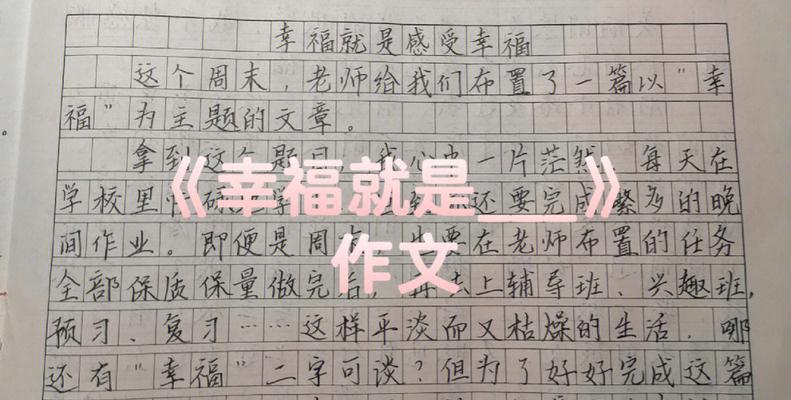 幸福就是感受幸福
这个周末，老师给我们布置了一篇以"幸
福"为主题的文章。
拿到这个题目，我心中一片茫然。每天在
《幸福就是___》
学校里 还要完成繁多的晚
间作业。即便是周末，也要在老师布置的任务
作文
全部保质保量做完后，再去上辅导班、兴趣班，
预习、复习……这样平淡而又枯燥的生活，哪
还有"幸福"二字可谈？但为了好好完成这篇